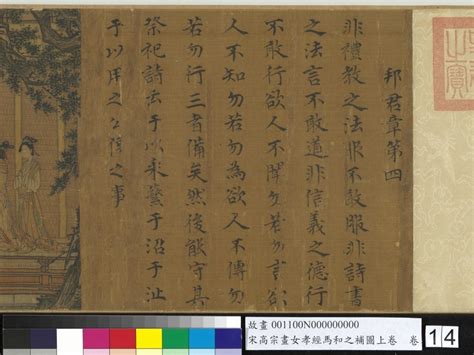 邦君章第四
非禮教之法服不敢服非詩書
之法言不敢道非信義之德行
不敢行欲人不聞勿若勿言欲
人不知勿若勿為欲人不傳勿
若勿行三者備矣然後能守其
祭祀詩云于以采蘩于沼于沚
于以用之公侯之事
故畫 001100N000000000
宋高宗書女孝經馬和之補圖上卷 卷
14